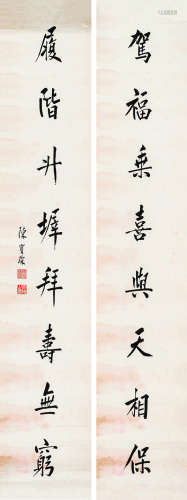 駕福乘喜與天相保
履階升墀拜壽無窮
陳寶琛